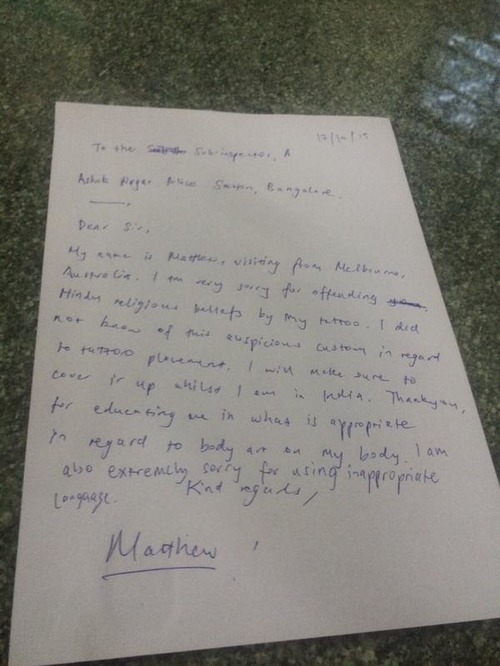 17/10/15
To the Sub-inspector, A
Ashok Nagar Police Station, Bangalore.
Dear Sir,
My name is Matthew, visiting from Melbourne,
Australia. I am very sorry for offending
Hindu religious beliefs by my tattoo. I did
not know of this auspicious custom in regard
to tattoo placement. I will make sure to
cover it up whilst I am in India. Thankyou,
for educating me in what is appropriate
in regard to body art on my body. I am
also extremely sorry for using inappropriate
language. Kind regards,
Matthew